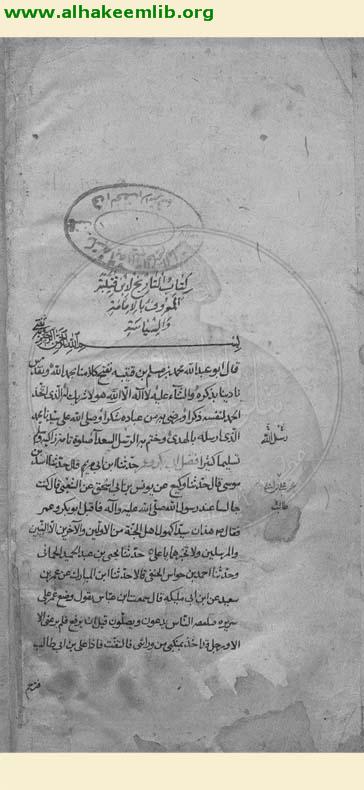 www.alhakeemlib.org
كتاب التاريخ لابن قتيبة
المعروف بالامامة
والسياسة
بسم الله الرحمن الرحيم
قال ابو عبد الله محمد بن مسلم بن قتيبة نفتح كلامنا بحمد الله
بذكره والثناء عليه لا اله الا الله هو لا شريك له الذي اتخذ
الحمد لنفسه ذكرا ورضي به من عباده شكرا وصلى الله على سيدنا محمد
الذي ارسله بالهدى وختم به الرسل السعدا صلوة
تسليما كثيرا فضل ابي بكر وعمر حدثنا ابن ابي مريم قال حدثنا اسد بن
موسى قال حدثنا وكيع عن يونس بن ابي اسحق عن الشعبي قال كنت
جالسا عند رسول الله صلى الله عليه وآله فاقبل ابو بكر وعمر
فقال هذان سيدا كهول اهل الجنة من الاولين والآخرين الا النبيين
والمرسلين ولا تخبرهما يا علي حدثنا يحيى بن عبد الحميد الحماني
وحدثنا احمد بن حواس الحنفي قالا حدثنا ابن المبارك عن عمر بن
سعيد عن ابن ابي مليكة قال سمعت ابن عباس يقول وضع عمر على
سريره الناس يدعون ويصلون قبل ان يرفع فلم يرعني الا
الا ورجل قد اخذ بمنكبي من ورائي فالتفت فاذا علي بن ابي طالب
رسول الله